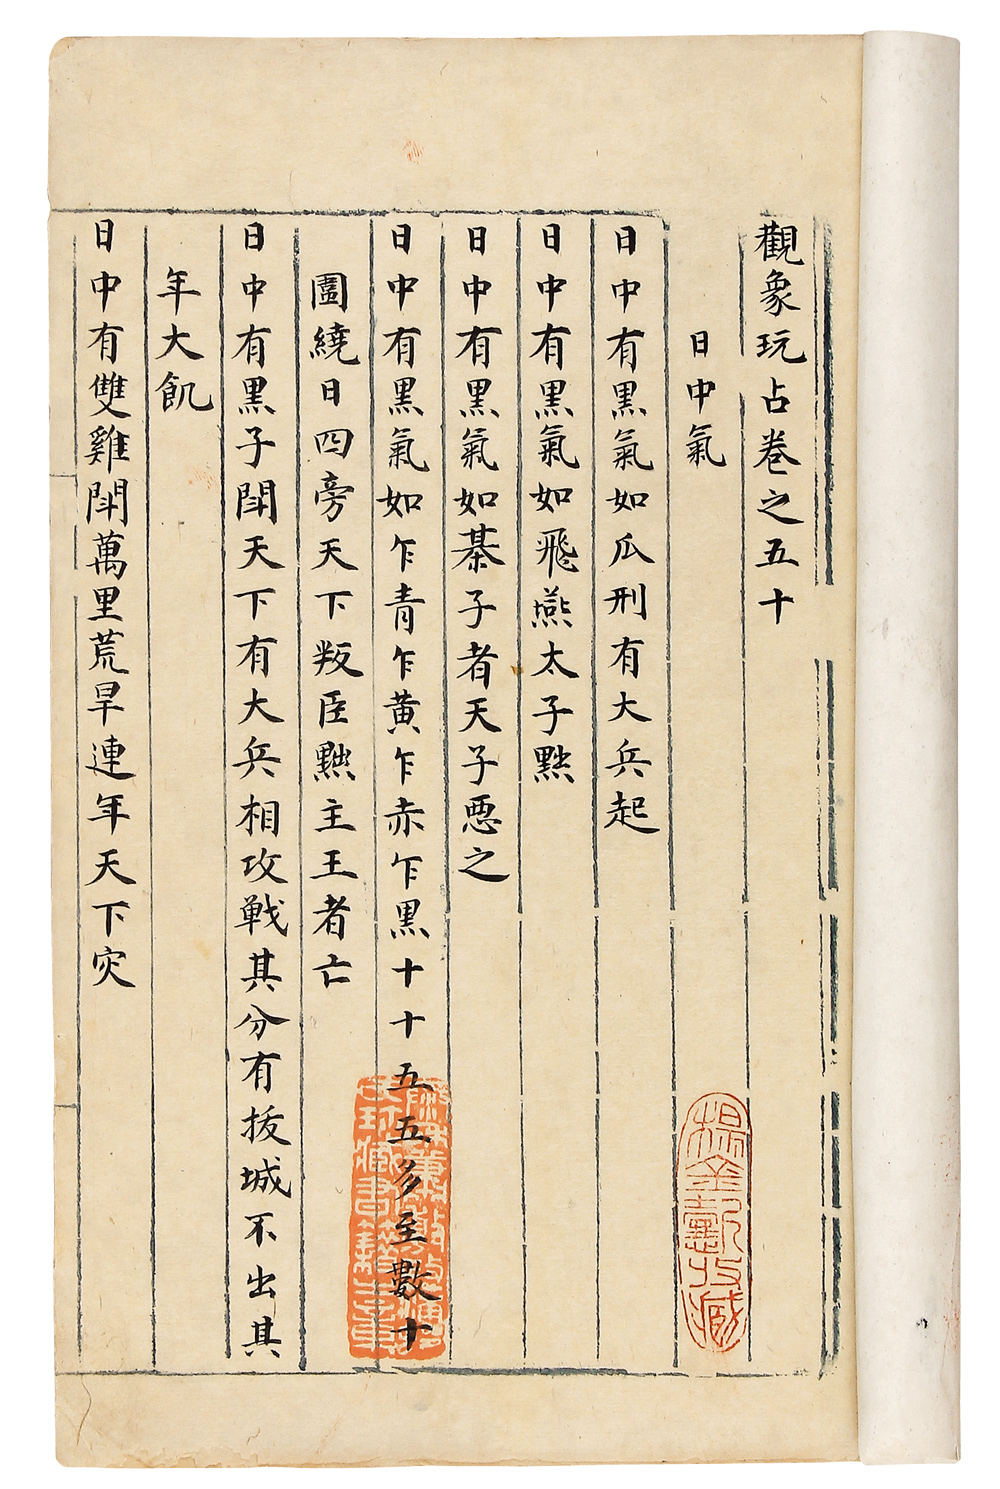 觀象玩占卷之五十
日中氣
日中有黑氣如瓜刑有大兵起
日中有黑氣如飛燕太子黜
日中有黑氣如棊子者天子惡之
日中有黑氣如乍青乍黄乍赤乍黒十十五五多至數十
圍繞日四旁天下叛臣黜主王者亡
日中有黒子鬪天下有大兵相攻戰其分有拔城不出其
年大飢
日中有雙雞鬪萬里荒旱連年天下災